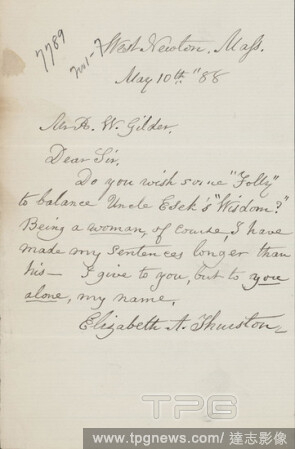 7789
Vol-7
West Newton, Mass.
May 10th "88
Mr R. W. Gilder,
Dear Sir,
Do you wish some "Folly"
to balance Uncle Esek's "Wisdom?"
Being a woman, of course, I have
made my sentences longer than
his— I give to you, but to you
alone, my name,
Elizabeth A. Thurston—
TPG
www.tpgnews.com / 達志影像